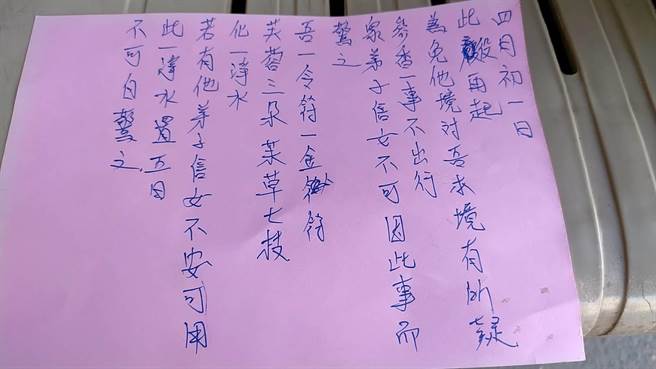 四月初一日
此疫再起
為免他境対吾本境有所疑
參香一事不出行
眾弟子信女不可因此事而
驚之
吾一令符一金符
芙蓉三朵茉草七枝
化一淨水
若有他弟子信女不安可用
此一淨水置五日
不可自驚之